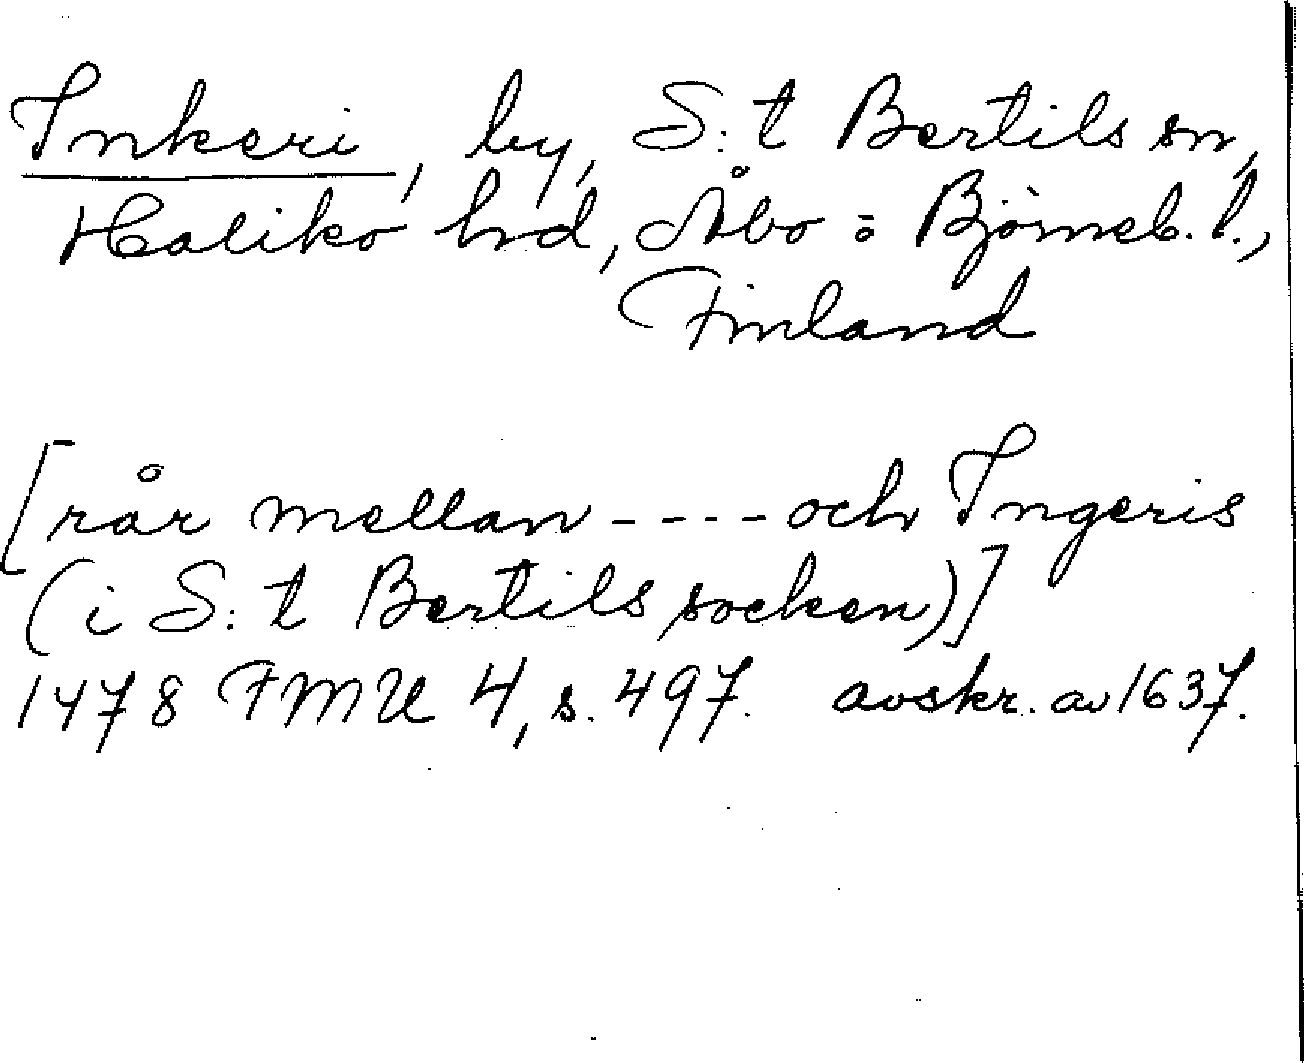 Inkeri, by, S:t Bertils sn,
Haliko hd, Åbo = Björneb. l.,
Finland
[rår mellan - - - - och Ingeris
(i S:t Bertils socken)]
1478 FMU 4, s. 497. avskr. av 1637.